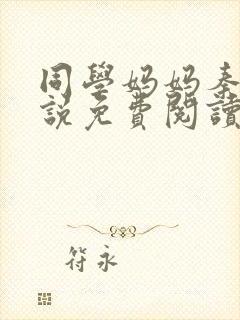 同學妈妈秦
說免費閱讀
符永